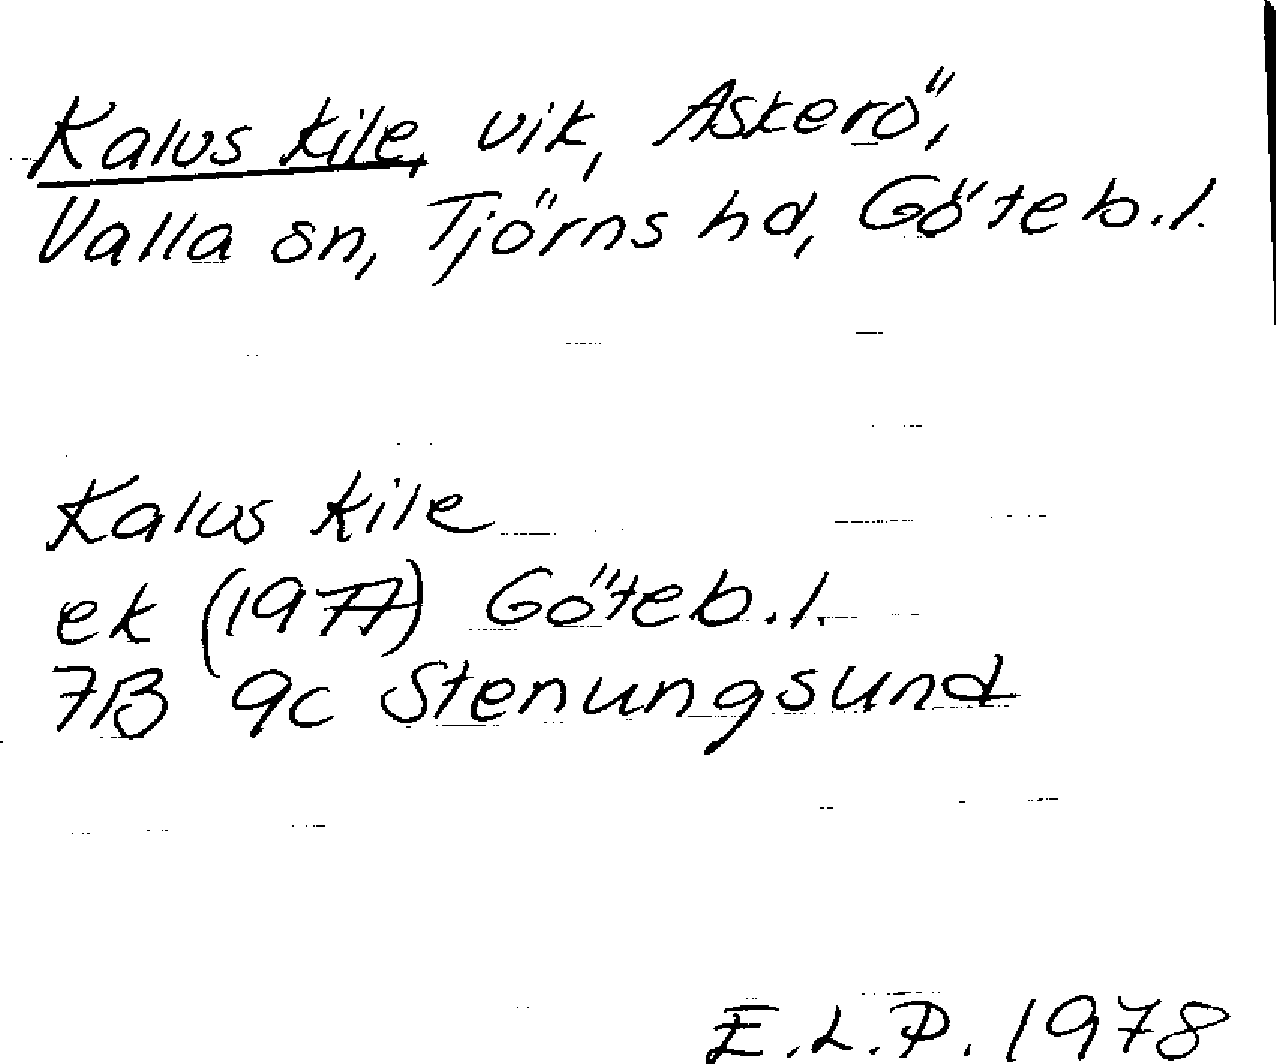 Kalvs kile, vik, Askerö,
Valla sn, Tjörns hd, Göteb.l.
Kalvs kile
ek (1977) Göteb.l.
7B 9c Stenungsund
E.L.P. 1978